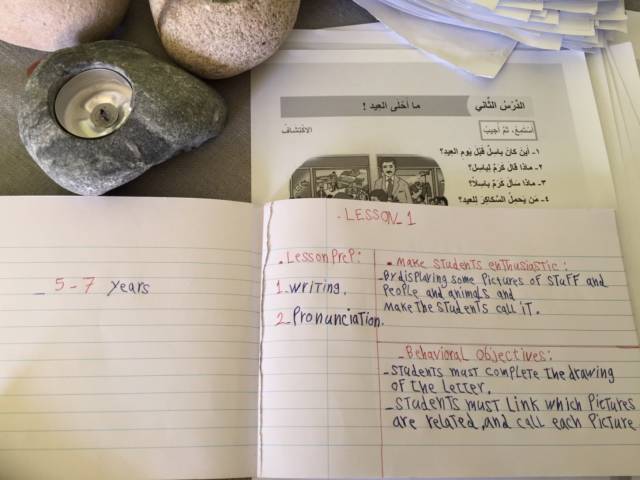 الدَّرْسُ الثّاني
ما أَحْلى العيد !
أَسْتَمِعُ، ثُمَّ أُجيبُ
الاكْتِشافُ
١- أَيْنَ كانَ باسِلٌ قَبْلَ يَومِ العيدِ؟
٢- ماذا قالَ كَرَمٌ لِباسِل؟
٣- ماذا سَأَلَ كَرَمٌ باسِلاً؟
٤- مَن يَحمِلُ السَّكاكِرَ لِلعيدِ؟
- 5-7 years
. LESSON_1
. Lesson Prep:
1_ writing.
2_ Pronunciation.
• Make students enthusiastic:
- By displaying some Pictures of stuff and
People and animals and
Make the students call it.
_ Behavioral objectives:
- students must complete the drawing
of the letter.
- students must link which Pictures
are related, and call each Picture